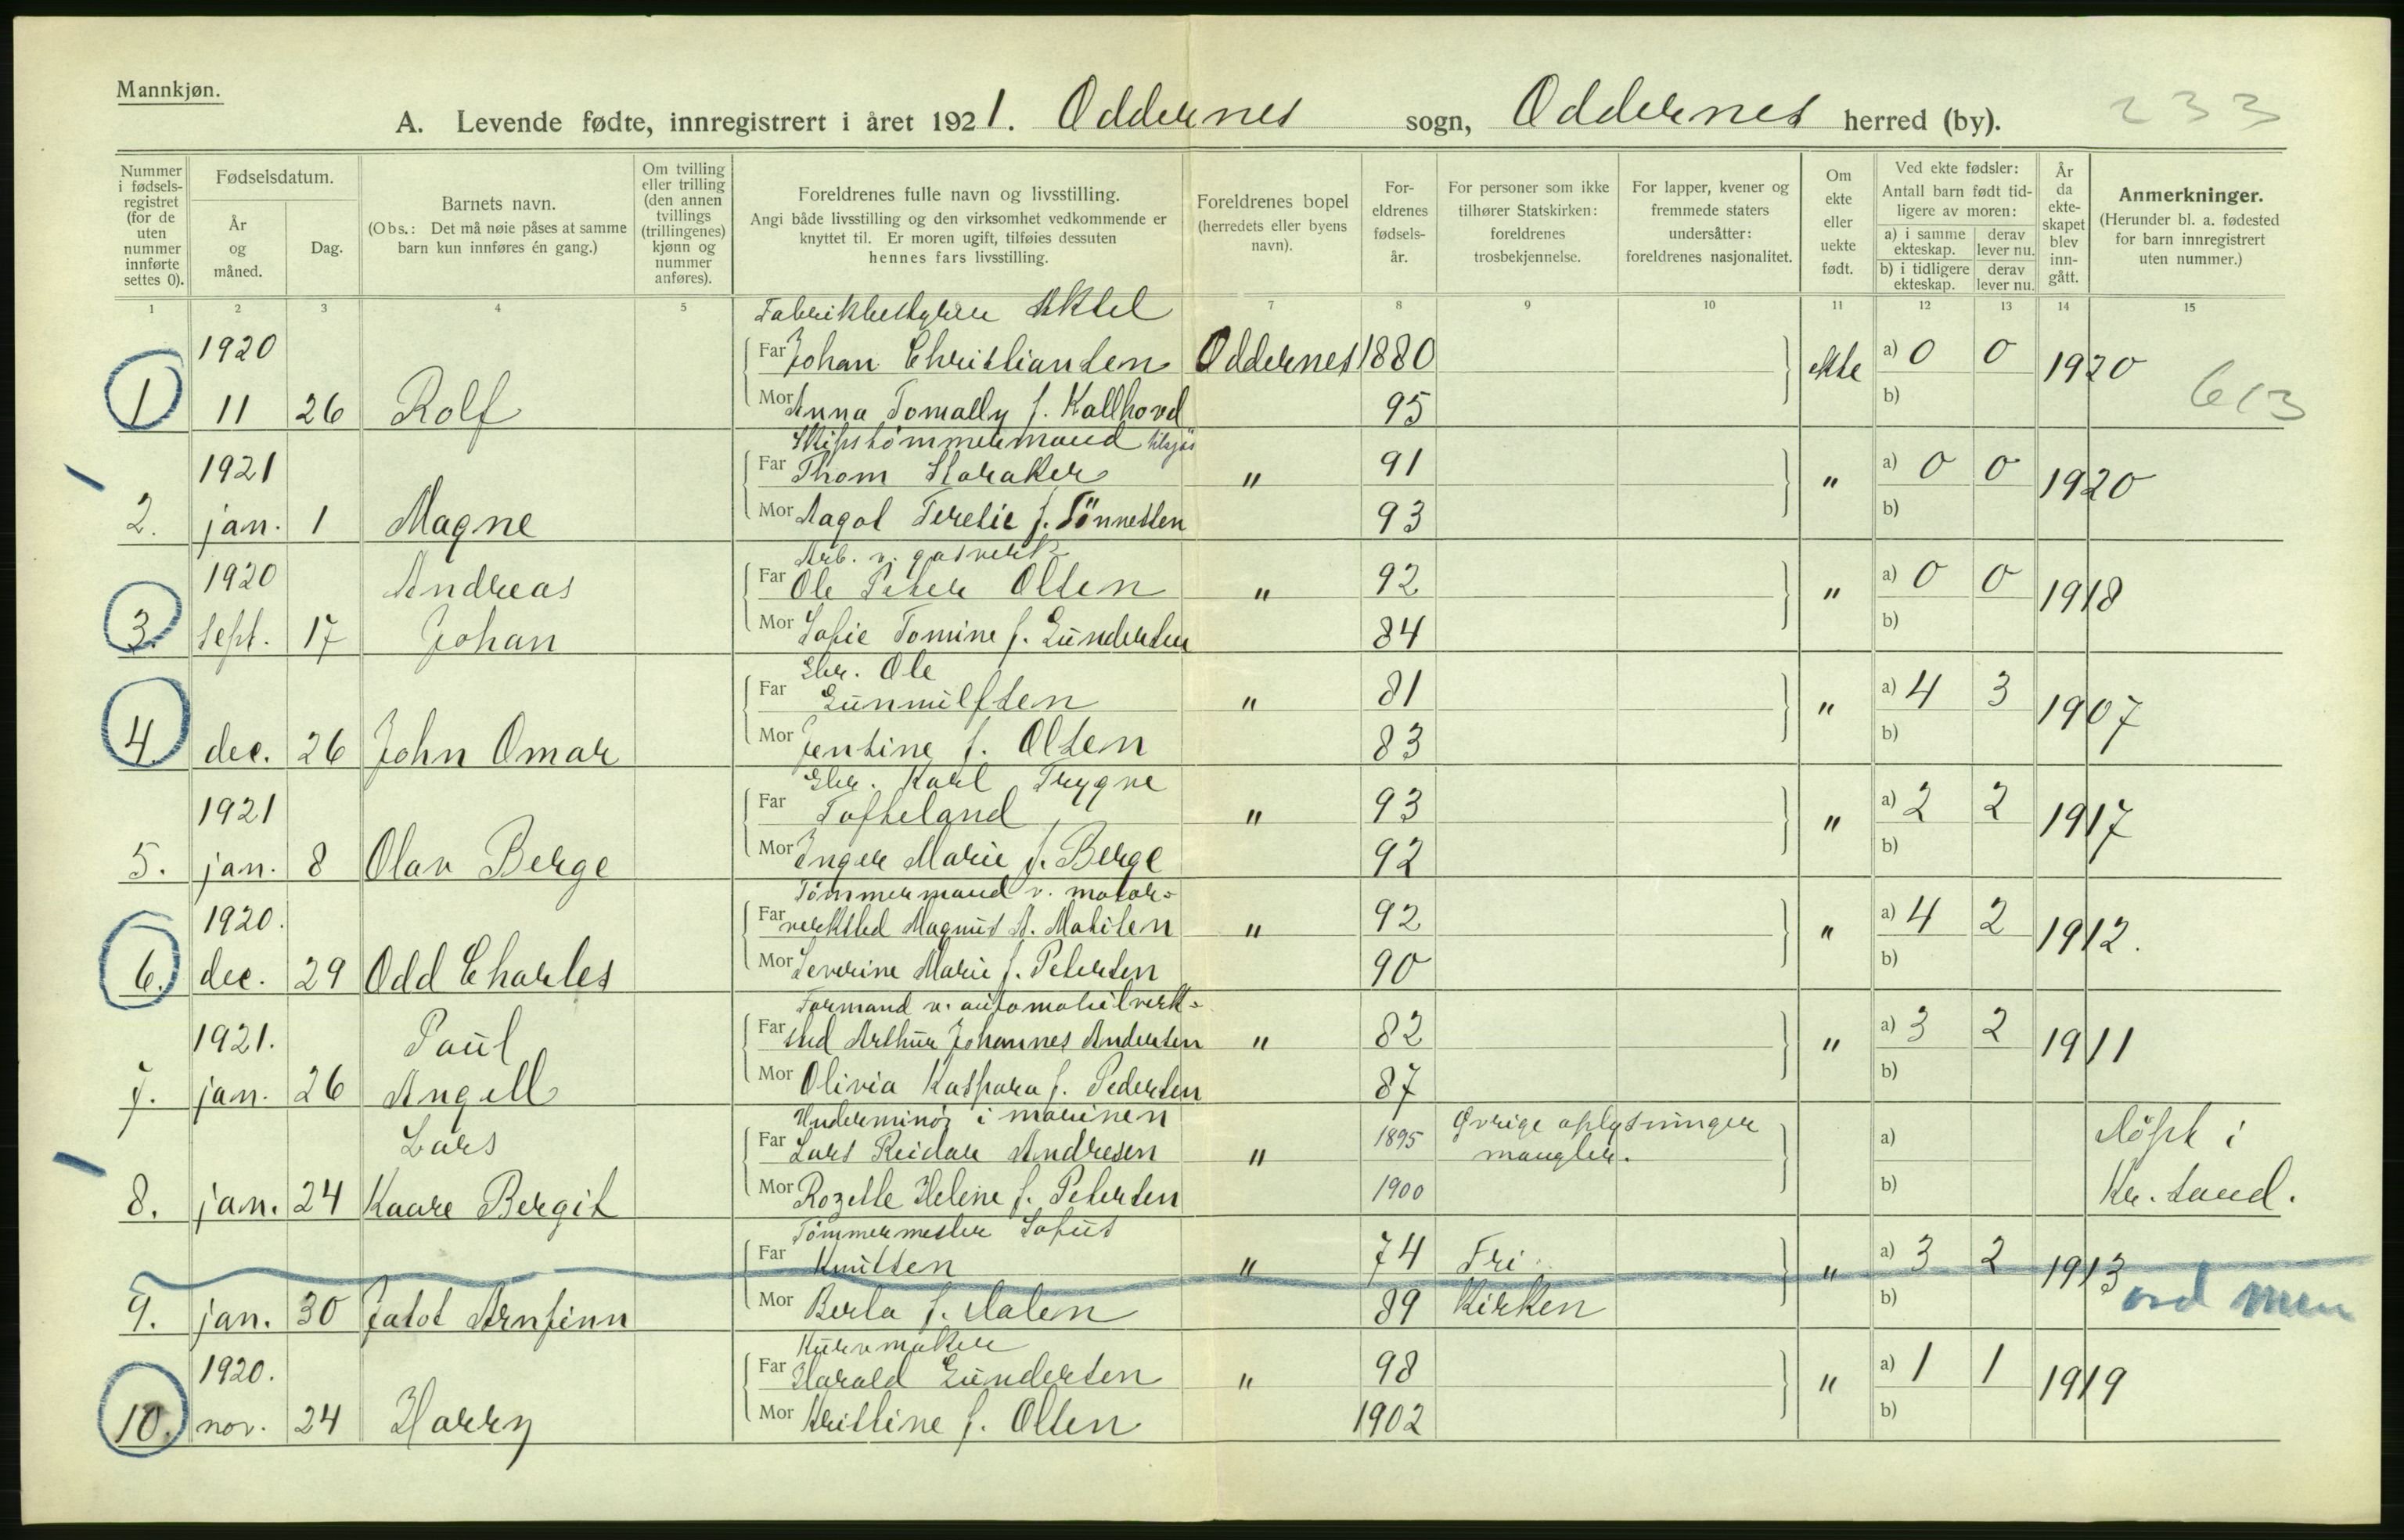 Mannkjøn.
A. Levende fødte, innregistrert i året 1921. Oddernes sogn, Oddernes herred (by). 233
Nummer i fødsels-registret (for de uten nummer innførte settes 0).
Fødselsdatum.
År og måned.
Dag.
Barnets navn.
(Obs.: Det må nøie påses at samme barn kun innføres én gang.)
Om tvilling eller trilling (den annen tvillings (trillingenes) kjønn og nummer anføres).
Foreldrenes fulle navn og livsstilling.
Angi både livsstilling og den virksomhet vedkommende er knyttet til. Er moren ugift, tilføies dessuten hennes fars livsstilling.
Foreldrenes bopel (herredets eller byens navn).
For-eldrenes fødsels-år.
For personer som ikke tilhører Statskirken: foreldrenes trosbekjennelse.
For lapper, kvener og fremmede staters undersåtter: foreldrenes nasjonalitet.
Om ekte eller uekte født.
Ved ekte fødsler:
Antall barn født tid-ligere av moren:
a) i samme ekteskap.
derav lever nu.
b) i tidligere ekteskap.
derav lever nu.
År da ekte-skapet blev inn-gått.
Anmerkninger.
(Herunder bl. a. fødested for barn innregistrert uten nummer.)
1 2 3 4 5 7 8 9 10 11 12 13 14 15
Fabrikkbestyrer Aksel
1920 Far Johan Christiansen Oddernes 1880 ekte a) 0 0 1920
1 11 26 Rolf Mor Anna Tomally f. Kallhovd 95 b) 613
Skipstømmermand tilsjøs
1921 Far Thom Haraker " 91 " a) 0 0 1920
2. jan. 1 Magne Mor Aagot Teresie f. Tönnessen 93 b)
Arb. v. gasverk
1920 Andreas Far Ole Peter Olsen " 92 " a) 0 0 1918
3. sept. 17 Johan Mor Sofie Tomine f. Gundersen 84 b)
Ole
Far Gunnulfsen " 81 " a) 4 3 1907
4. dec. 26 John Omar Mor Jentine f. Olsen 83 b)
Karl Trygve
1921 Far Tofteland " 93 " a) 2 2 1917
5. jan. 8 Olav Berge Mor Inger Marie f. Berge 92 b)
Tömmermand v. motor=
1920. Far verksted Magnus A. Mathisen " 92 " a) 4 2 1912.
6. dec. 29 Odd Charles Mor Severine Marie f. Petersen 90 b)
Formand v. automobilverk=
1921. Paul Far sted Arthur Johannes Andersen " 82 " a) 3 2 1911
7. jan. 26 Angell Mor Olivia Kaspara f. Pedersen 87 b)
Underminör i marinen
Lars Far Lars Reidar Andresen " 1895 Øvrige oplysninger mangler. a) Döpt i
8. jan. 24 Kaare Bergit Mor Rozette Helene f. Petersen 1900 b) Kr.sand.
Tömmermester Sofus
Far Knutsen " 74 Fri " a) 3 2 1913
9. jan. 30 Jatot Arnfinn Mor Berta f. Dalen 89 Kirken b)
Kurvmaker
1920. Far Harald Gundersen " 98 " a) 1 1 1919
10. nov. 24 Harry Mor Kristine f. Olsen 1902 b)